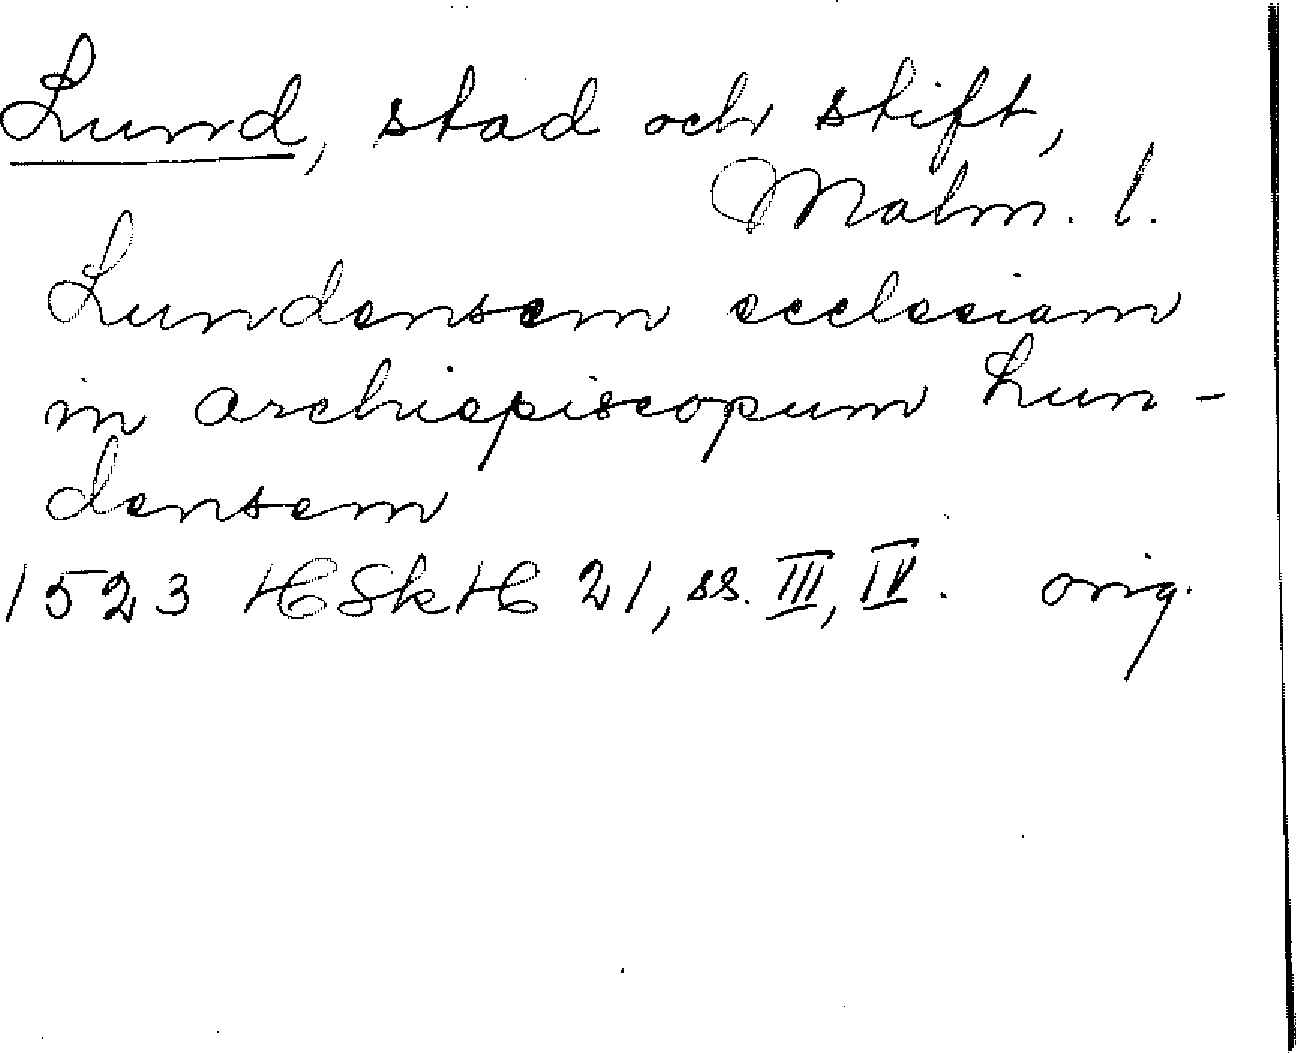 Lund, stad och stift,
Malm. l.
Lundensem ecclesiam
in archiepiscopum Lun-
densem
1523 HSkH 21, ss. III, IV. orig.